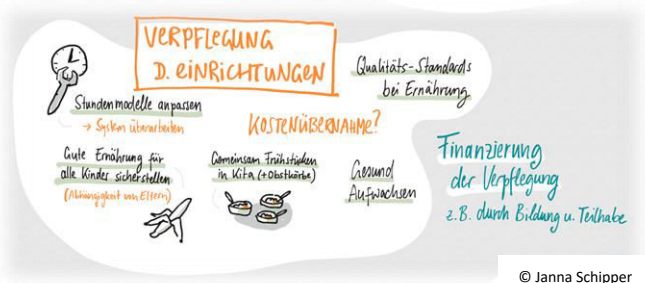 VERPFLEGUNG
D. EINRICHTUNGEN
Qualitäts-Standards
bei Ernährung
Stundenmodelle anpassen
→ System überarbeiten
KOSTENÜBERNAHME?
Gute Ernährung für
alle Kinder sicherstellen
(Abhängigkeit von Eltern)
Gemeinsam Frühstücken
in Kita (+Obstkörbe)
Gesund
Aufwachsen
Finanzierung
der Verpflegung
z.B. durch Bildung u. Teilhabe
© Janna Schipper